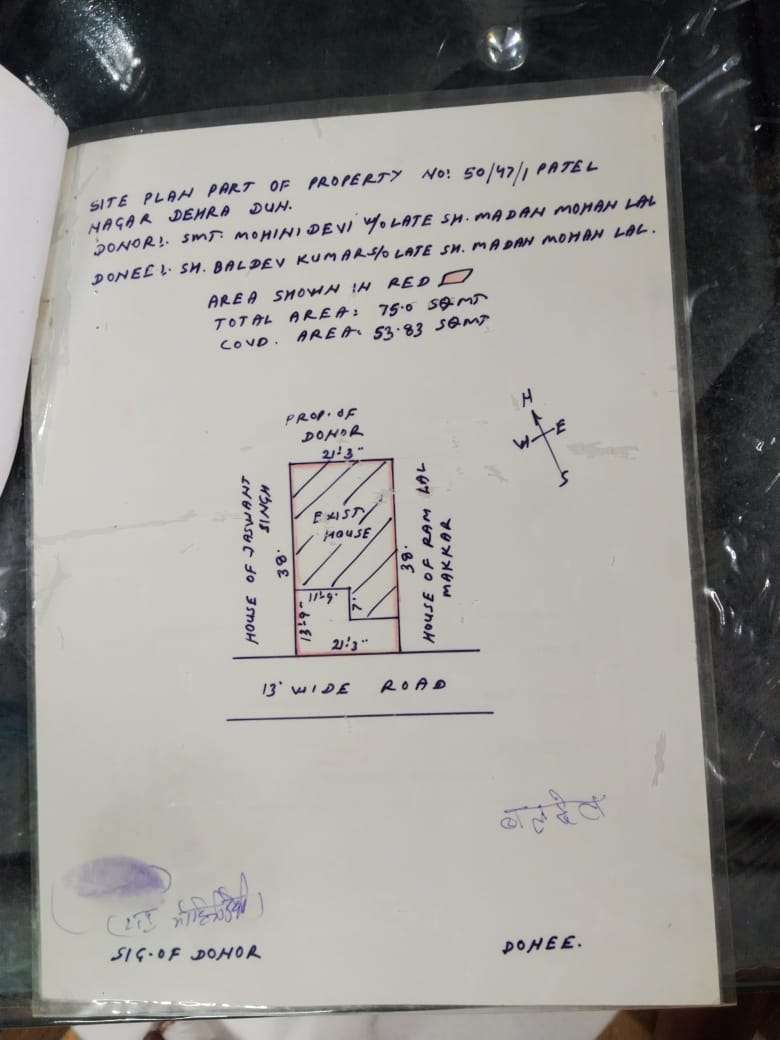 SITE PLAN PART OF PROPERTY NO: 50/47/1 PATEL
NAGAR DEHRA DUN.
DONOR:. SMT. MOHINI DEVI W/O LATE SH. MADAN MOHAN LAL
DONEE:. SH. BALDEV KUMAR S/O LATE SH. MADAN MOHAN LAL.
AREA SHOWN IN RED
TOTAL AREA: 75.0 SQMT
COVD. AREA: 53.83 SQMT
N
W E
S
PROP. OF
DONOR
21'3"
HOUSE OF JASWANT
SINGH
38'
EXIST.
HOUSE
38'
HOUSE OF RAM LAL
MAKKAR
11'9"
7'
13'9"
21'3"
13' WIDE ROAD
बलदेव
SIG. OF DONOR
DONEE.